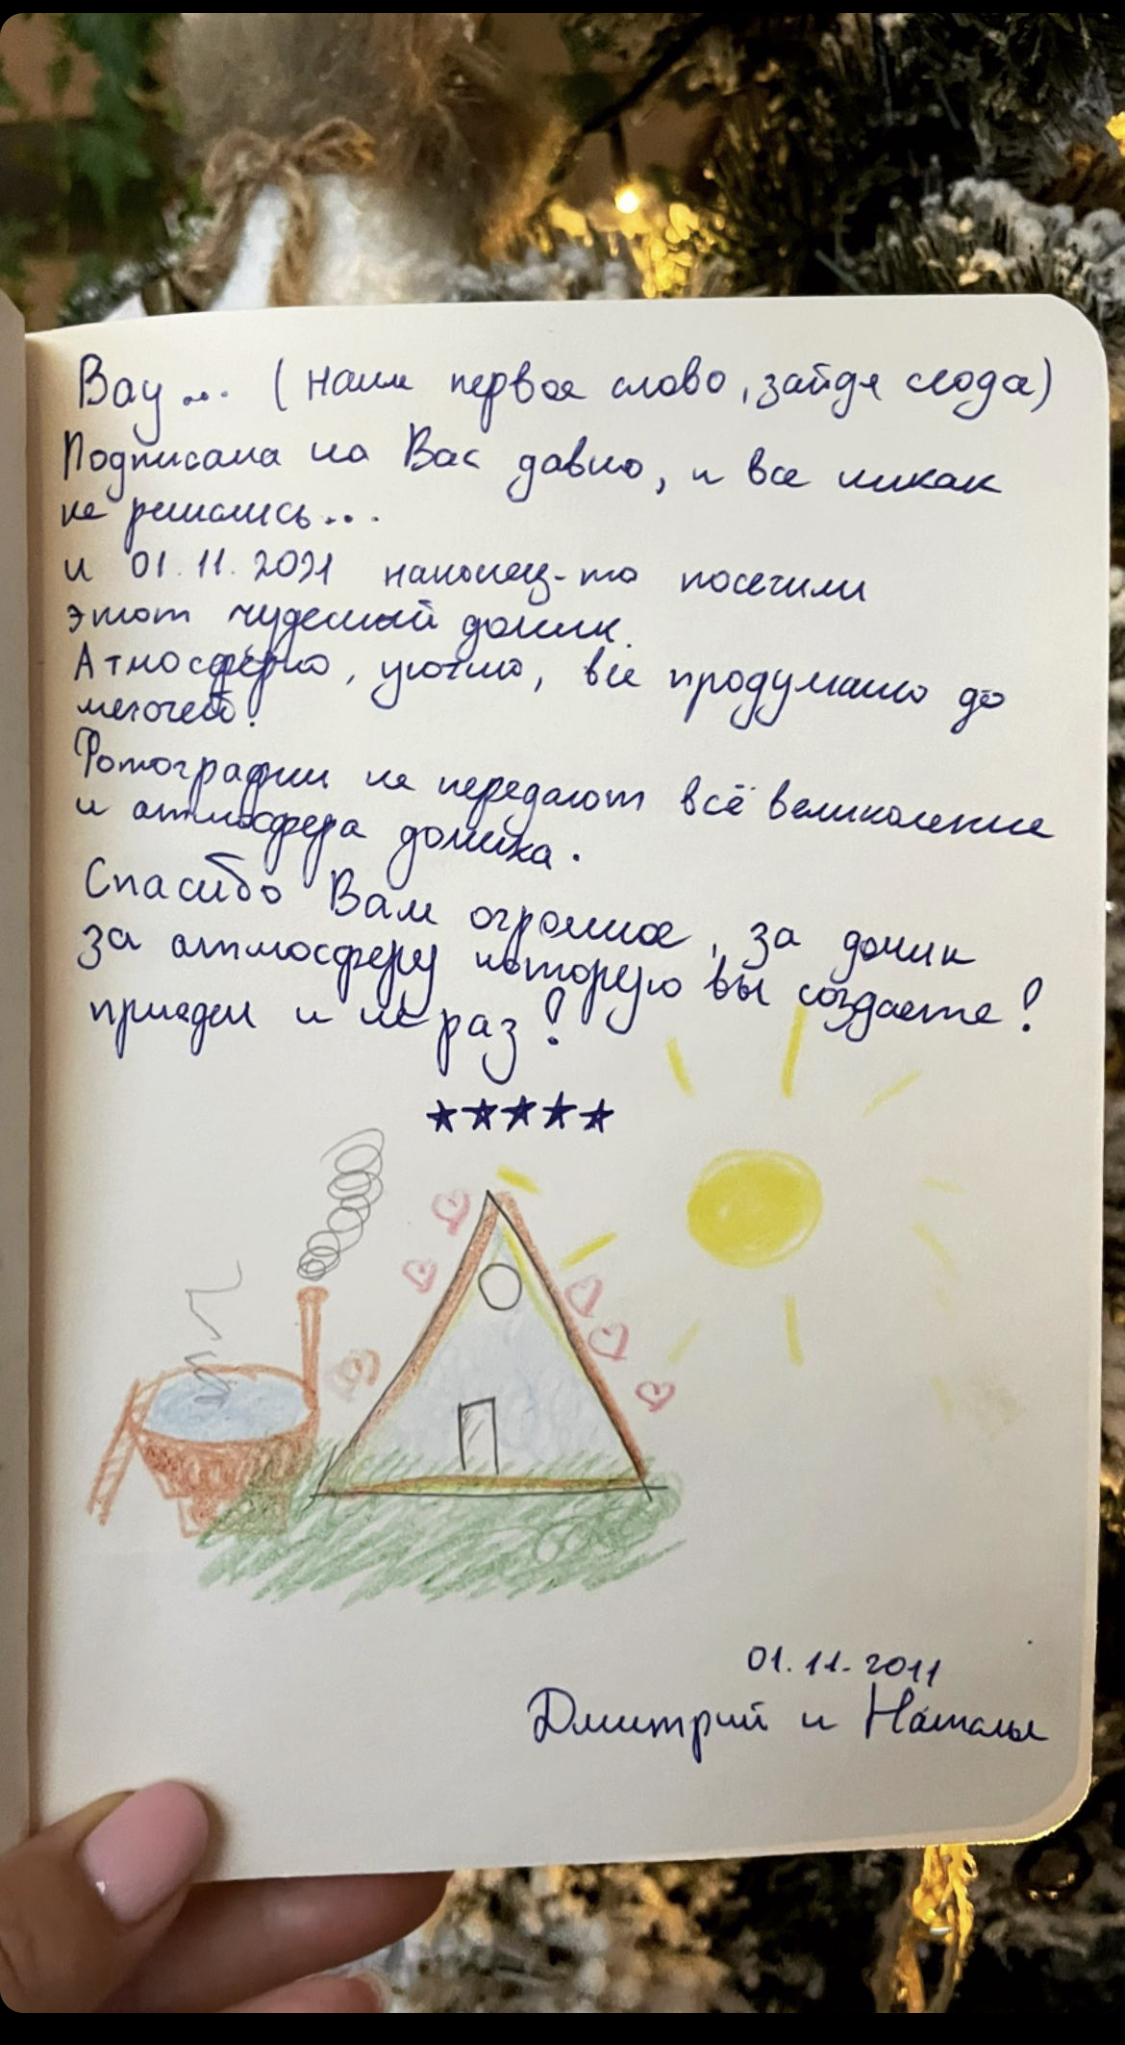 Вау... (наше первое слово, зайдя сюда)
Подписана на Вас давно, и все никак
не решались...
и 01.11.2021 наконец-то посетили
этот чудесный домик.
Атмосферно, уютно, все продумано до
мелочей!
Фотографии не передают всё великолепие
и атмосфера домика.
Спасибо Вам огромное, за домик
за атмосферу которую вы создаете!
приедем и не раз!
★★★★★
01.11.2011
Дмитрий и Наталья